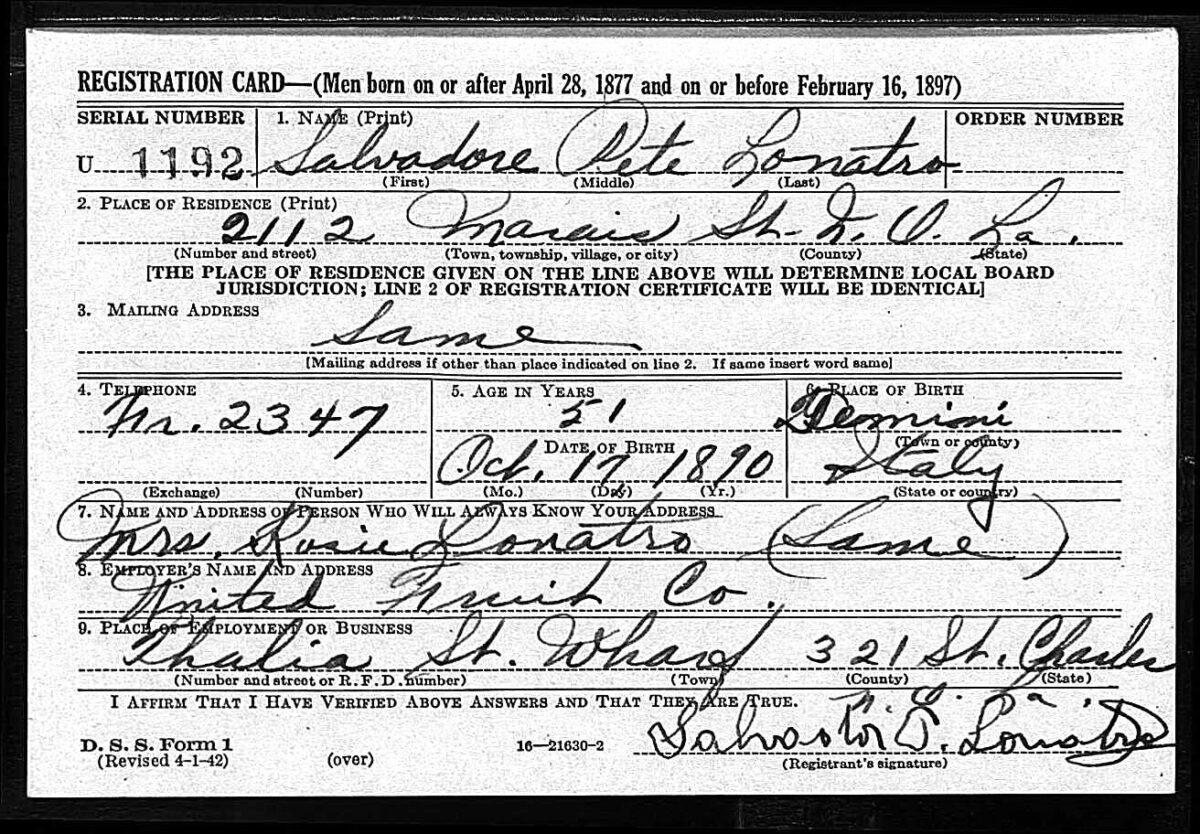 REGISTRATION CARD—(Men born on or after April 28, 1877 and on or before February 16, 1897)
SERIAL NUMBER 1. NAME (Print) ORDER NUMBER
U 1192 Salvadore Pete Lonatro
(First) (Middle) (Last)
2. PLACE OF RESIDENCE (Print)
2112 Marais St. N. O. La.
(Number and street) (Town, township, village, or city) (County) (State)
[THE PLACE OF RESIDENCE GIVEN ON THE LINE ABOVE WILL DETERMINE LOCAL BOARD
JURISDICTION; LINE 2 OF REGISTRATION CERTIFICATE WILL BE IDENTICAL]
3. MAILING ADDRESS
Same
[Mailing address if other than place indicated on line 2. If same insert word same]
4. TELEPHONE 5. AGE IN YEARS 6. PLACE OF BIRTH
Fr. 2347 51
(Town or county)
DATE OF BIRTH
Oct. 17 1890 Italy
(Exchange) (Number) (Mo.) (Day) (Yr.) (State or country)
7. NAME AND ADDRESS OF PERSON WHO WILL ALWAYS KNOW YOUR ADDRESS
Mrs. Rosie Lonatro (Same)
8. EMPLOYER'S NAME AND ADDRESS
United Fruit Co.
9. PLACE OF EMPLOYMENT OR BUSINESS
Thalia St. Wharf 321 St. Charles
(Number and street or R. F. D. number) (Town) (County) (State)
N. O. La.
I AFFIRM THAT I HAVE VERIFIED ABOVE ANSWERS AND THAT THEY ARE TRUE.
D. S. S. Form 1 16—21630-2
(Revised 4-1-42) (over) (Registrant's signature)